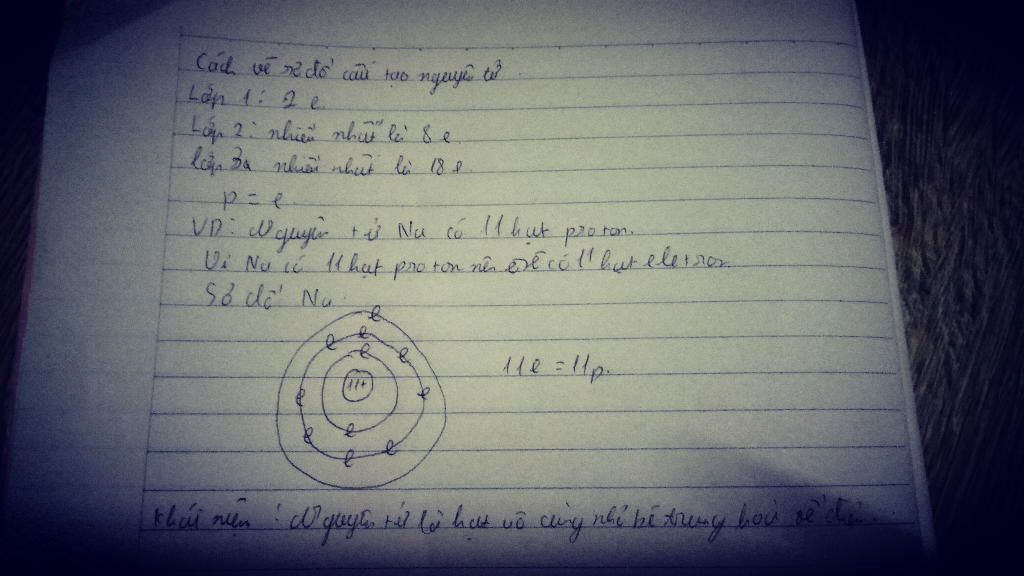 Cách vẽ sơ đồ cấu tạo nguyên tử
Lớp 1: 2 e
Lớp 2: nhiều nhất là 8 e
lớp 3 nhiều nhất là 18 e
p = e
VD: Nguyên tử Na có 11 hạt proton.
Vì Na có 11 hạt proton nên có 11 hạt eletron.
Sơ đồ Na
e
e
e e e
11+
e e
e e
e e
11e = 11p.
Khái niệm : Nguyên tử là hạt vô cùng nhỏ bé trung hoà về điện.